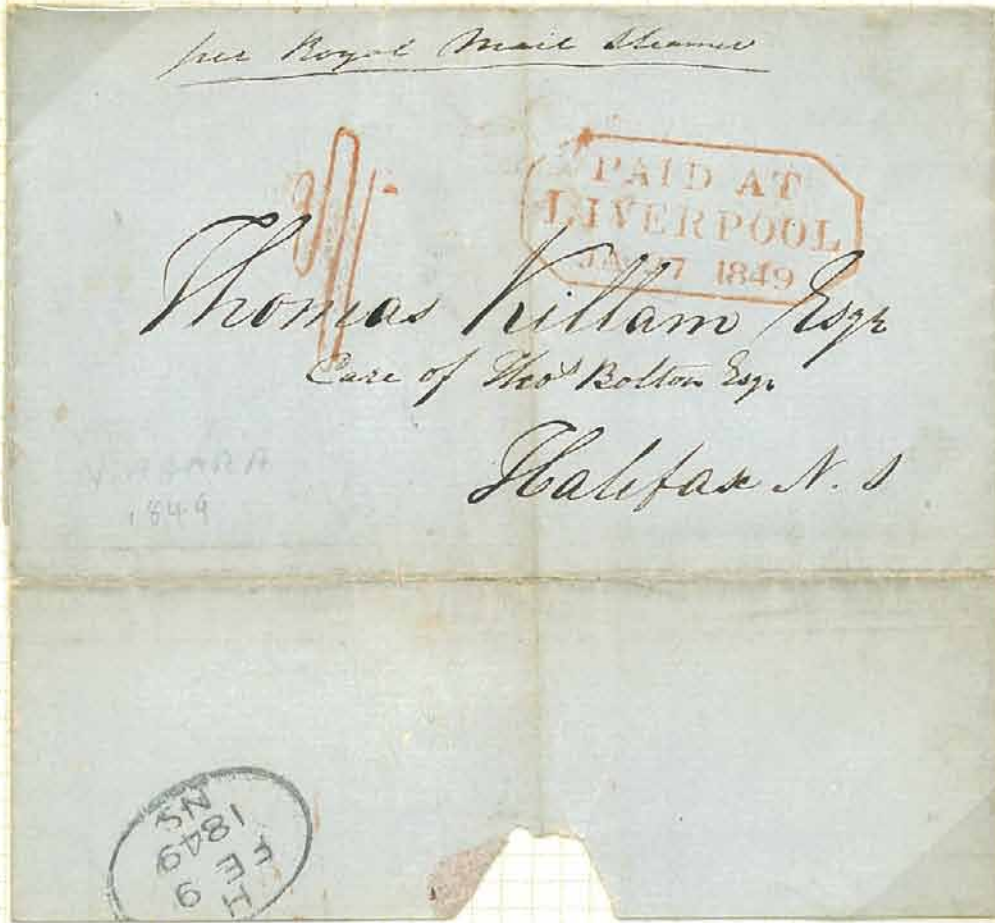 per Royal Mail Steamer
PAID AT
LIVERPOOL
JA 27 1849
1/-
Thomas Killam Esqr
Care of Thos Bolton Esqr
Halifax N. S
NIAGARA
1849
H
FE 9
1849
NS